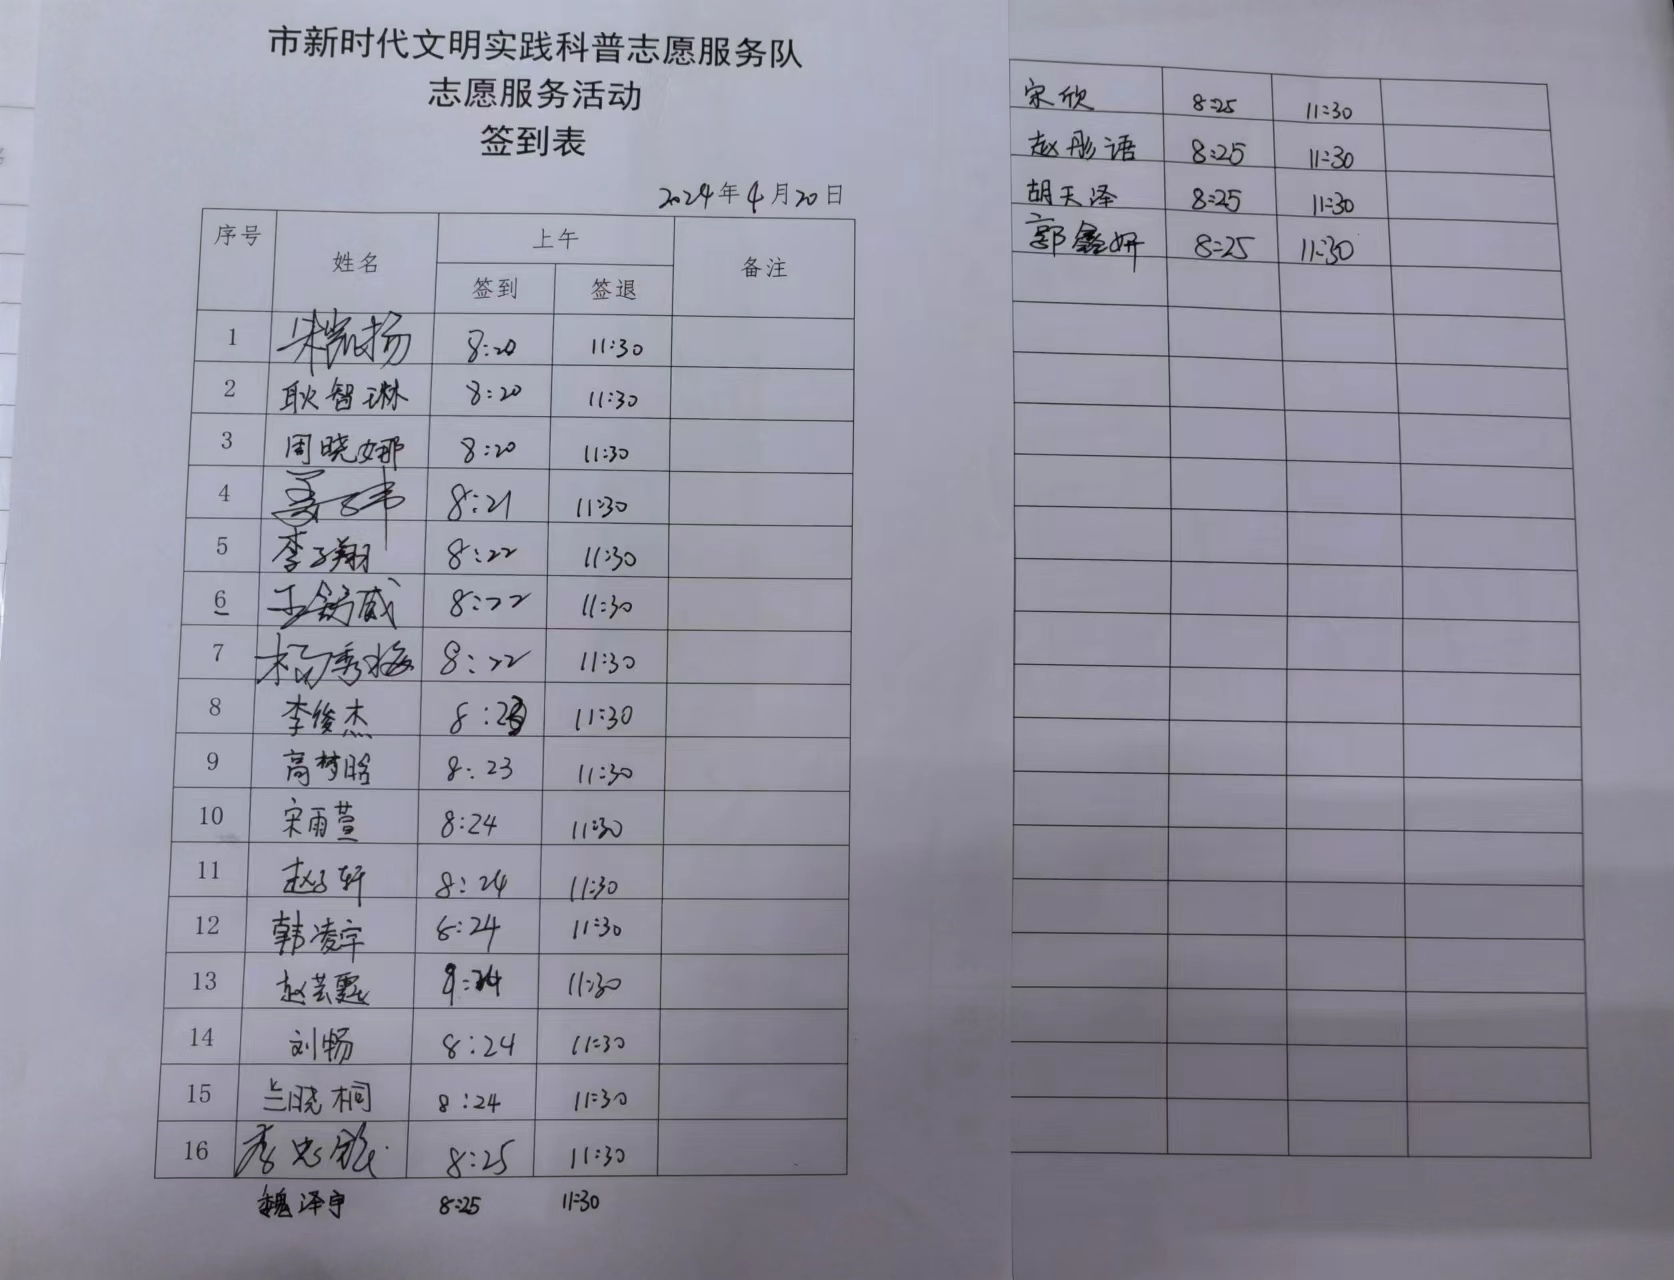 市新时代文明实践科普志愿服务队
志愿服务活动
签到表
2024年4月20日
序号 姓名 上午 备注
签到 签退
1 朱凯扬 8:20 11:30
2 耿智琳 8:20 11:30
3 周晓娜 8:20 11:30
4 8:21 11:30
5 李子翔 8:22 11:30
6 王舒威 8:22 11:30
7 杨秀梅 8:22 11:30
8 李俊杰 8:23 11:30
9 高梦晗 8:23 11:30
10 宋雨萱 8:24 11:30
11 赵子轩 8:24 11:30
12 韩凌宇 8:24 11:30
13 赵芸霆 8:24 11:30
14 刘畅 8:24 11:30
15 兰晓桐 8:24 11:30
16 李 8:25 11:30
魏泽宇 8:25 11:30
宋欣 8:25 11:30
赵彤语 8:25 11:30
胡天泽 8:25 11:30
郭鑫妍 8:25 11:30